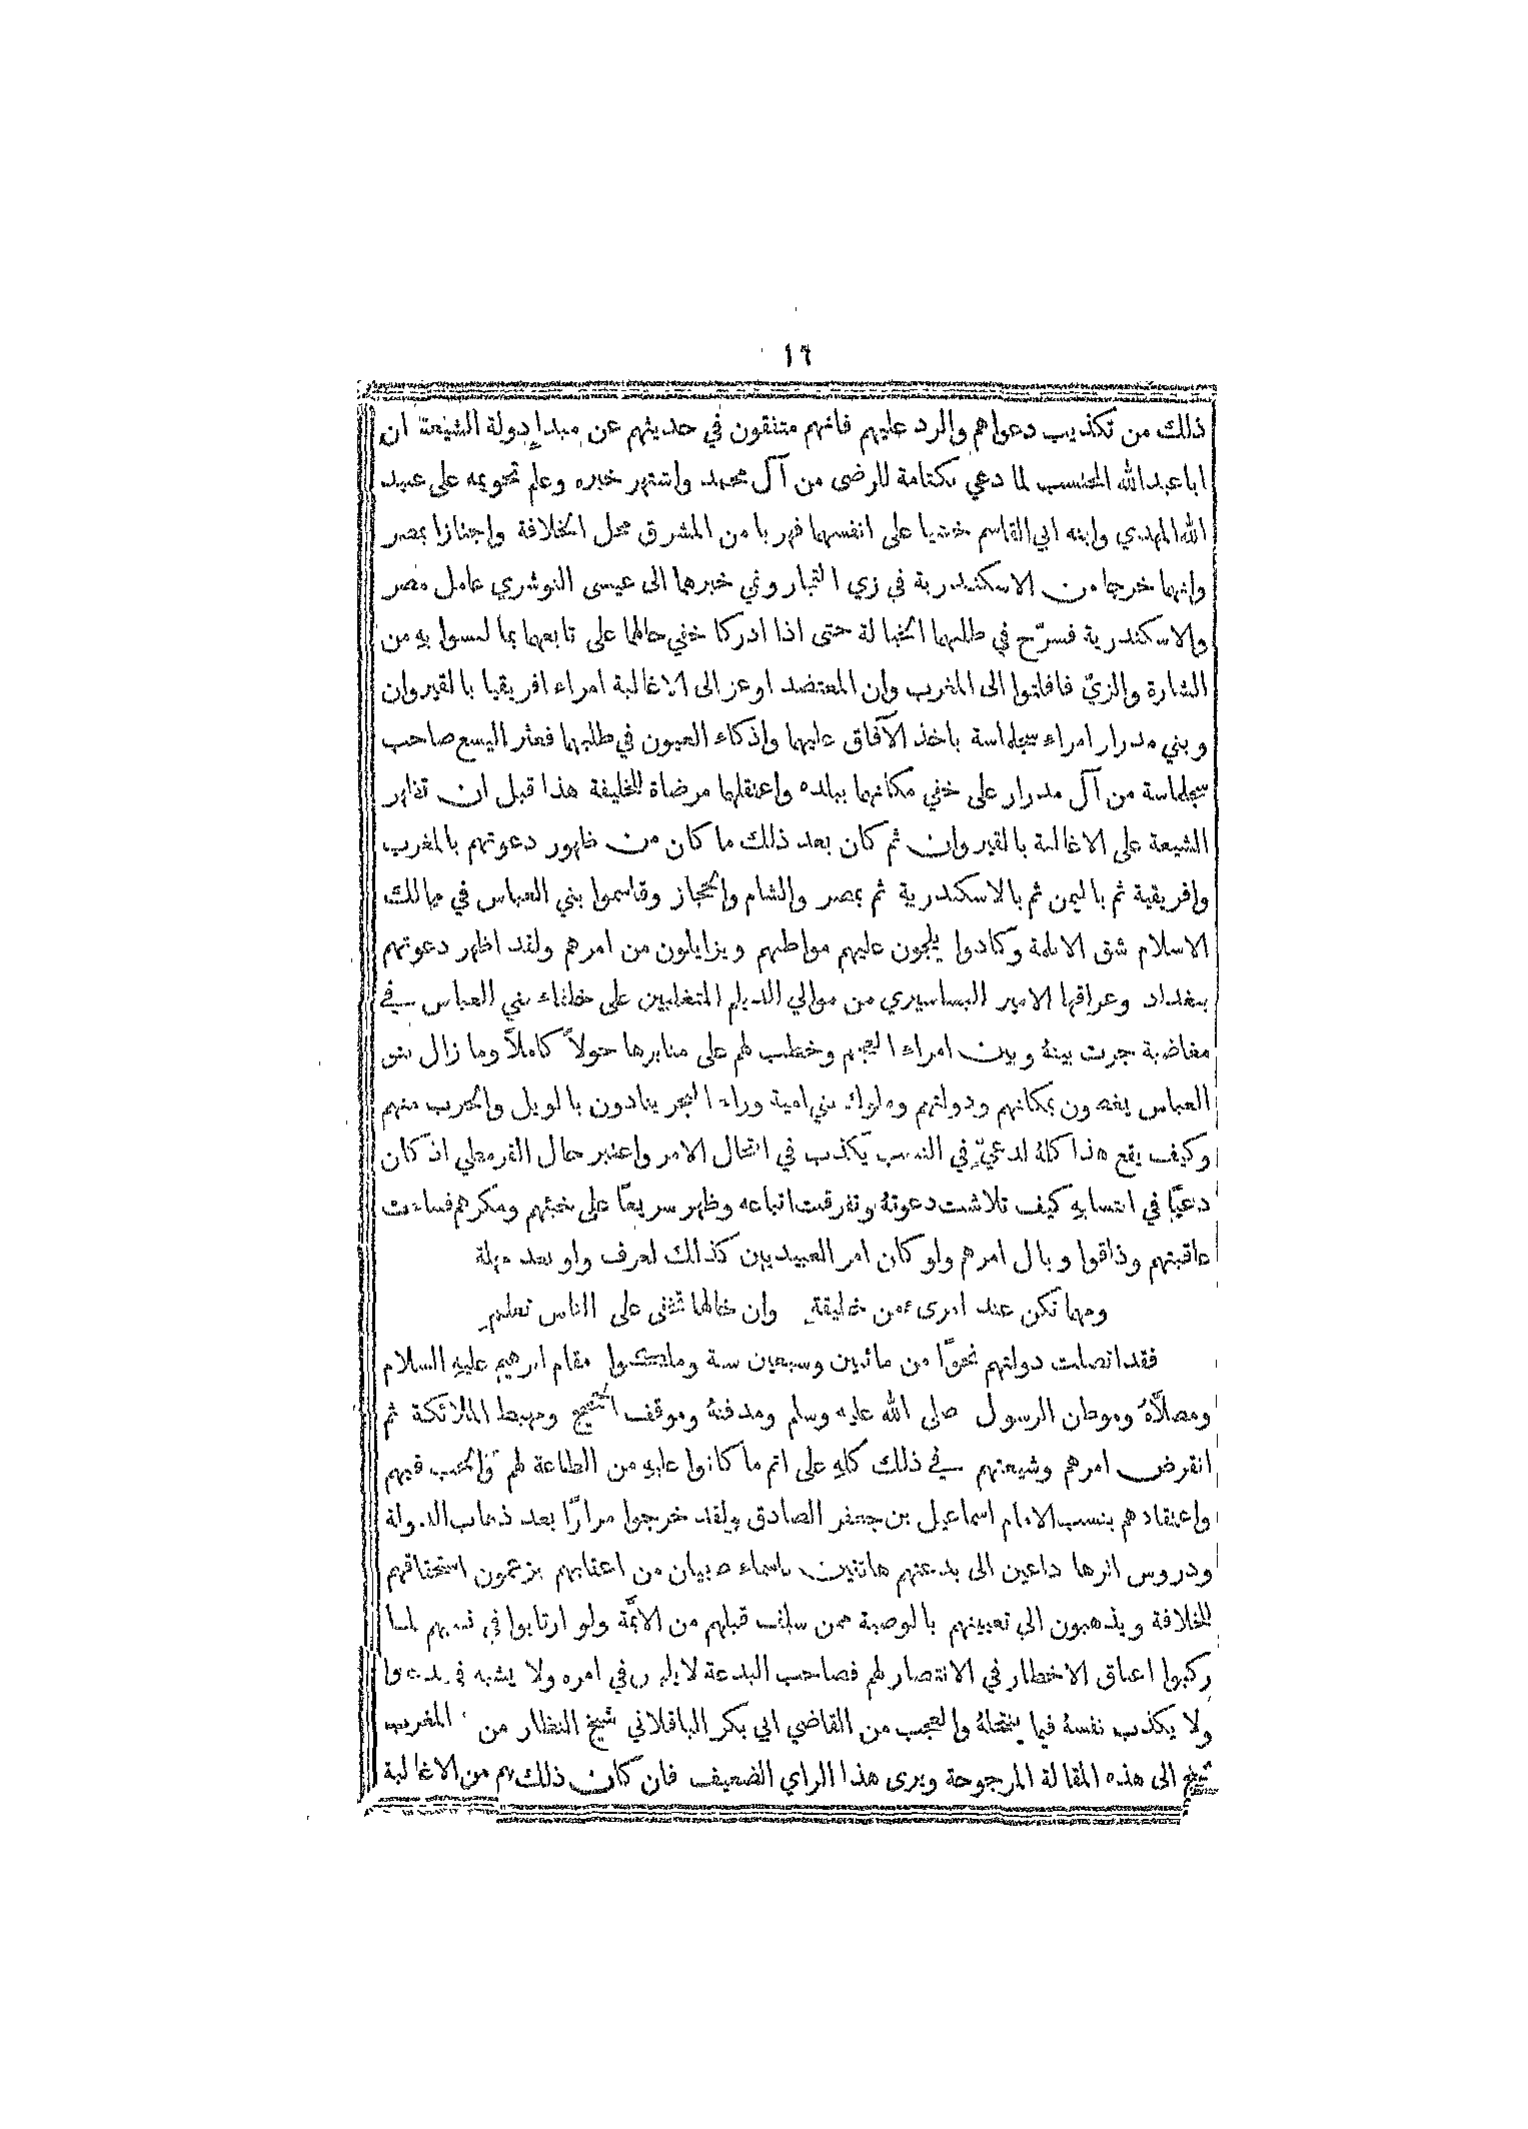 ١٦
ذلك من تكذيب دعواهم والرد عليهم فانهم متفقون في حديثهم عن مبدإ دولة الشيعة ان
ابا عبد الله المحتسب لما دعي بكتامة للرضى من آل محمد واشتهر خبره وعلم تحويمه على عبيد
الله المهدي وابنه ابي القاسم خشيا على انفسهما فهربا من المشرق محل الخلافة واجتازا بمصر
وانهما خرجا من الاسكندرية في زي التجار ونمي خبرهما الى عيسى النوشري عامل مصر
والاسكندرية فسرّح في طلبهما الخيالة حتى اذا ادركا خفي حالهما على تابعهما بما لبسوا به من
الشارة والزيّ فافلتوا الى المغرب وان المعتضد اوعز الى الاغالبة امراء افريقيا بالقيروان
وبني مدرار امراء سجلماسة باخذ الآفاق عليهما واذكاء العيون في طلبهما فعثر اليسع صاحب
سجلماسة من آل مدرار على خفي مكانهما ببلده واعتقلهما مرضاة للخليفة هذا قبل ان تظهر
الشيعة على الاغالبة بالقيروان ثم كان بعد ذلك ما كان من ظهور دعوتهم بالمغرب
وافريقية ثم باليمن ثم بالاسكندرية ثم بمصر والشام والحجاز وقاسموا بني العباس في ممالك
الاسلام شق الابلمة وكادوا يلجون عليهم مواطنهم ويزايلون من امرهم ولقد اظهر دعوتهم
ببغداد وعراقها الامير البساسيري من موالي الديلم المتغلبين على خلفاء بني العباس في
مغاضبة جرت بينهُ وبين امراء العجم وخطب لهم على منابرها حولاً كاملاً وما زال بنو
العباس يغصون بمكانهم ودولتهم وملوك بني امية وراء البحر ينادون بالويل والحرب منهم
وكيف يقع هذا كلهُ لدعيّ في النسب يكذب في انتحال الامر واعتبر حال القرمطي اذ كان
دعيّا في انتسابهِ كيف تلاشت دعوتهُ وتفرقت اتباعه وظهر سريعًا على خبثهم ومكرهم فساءت
عاقبتهم وذاقوا وبال امرهم ولو كان امر العبيديين كذلك لعرف ولو بعد مهلة
ومهما تكن عند امرىء من خليقةٍ وان خالها تخفى على الناس تعلمِ
فقد اتصلت دولتهم نحوًا من مائتين وسبعين سنة وملكوا مقام ابرهيم عليهِ السلام
ومصلّاهُ وموطن الرسول صلى الله عليه وسلم ومدفنهُ وموقف الحجيج ومهبط الملائكة ثم
انقرض امرهم وشيعتهم في ذلك كلهِ على اتم ما كانوا عليهِ من الطاعة لهم والحب فيهم
واعتقادهم بنسب الامام اسماعيل بن جعفر الصادق ولقد خرجوا مرارًا بعد ذهاب الدولة
ودروس اثرها داعين الى بدعتهم هاتفين باسماء صبيان من اعقابهم يزعمون استحقاقهم
للخلافة ويذهبون الى تعيينهم بالوصية ممن سلف قبلهم من الائمّة ولو ارتابوا في نسبهم لما
ركبوا اعناق الاخطار في الانتصار لهم فصاحب البدعة لا يلبس في امره ولا يشبه في بدعته
ولا يكذب نفسهُ فيما ينتحلهُ والعجب من القاضي ابي بكر الباقلاني شيخ النظار من المغرب
الى هذه المقالة المرجوحة ويرى هذا الراي الضعيف فان كان ذلك من الاغالبة